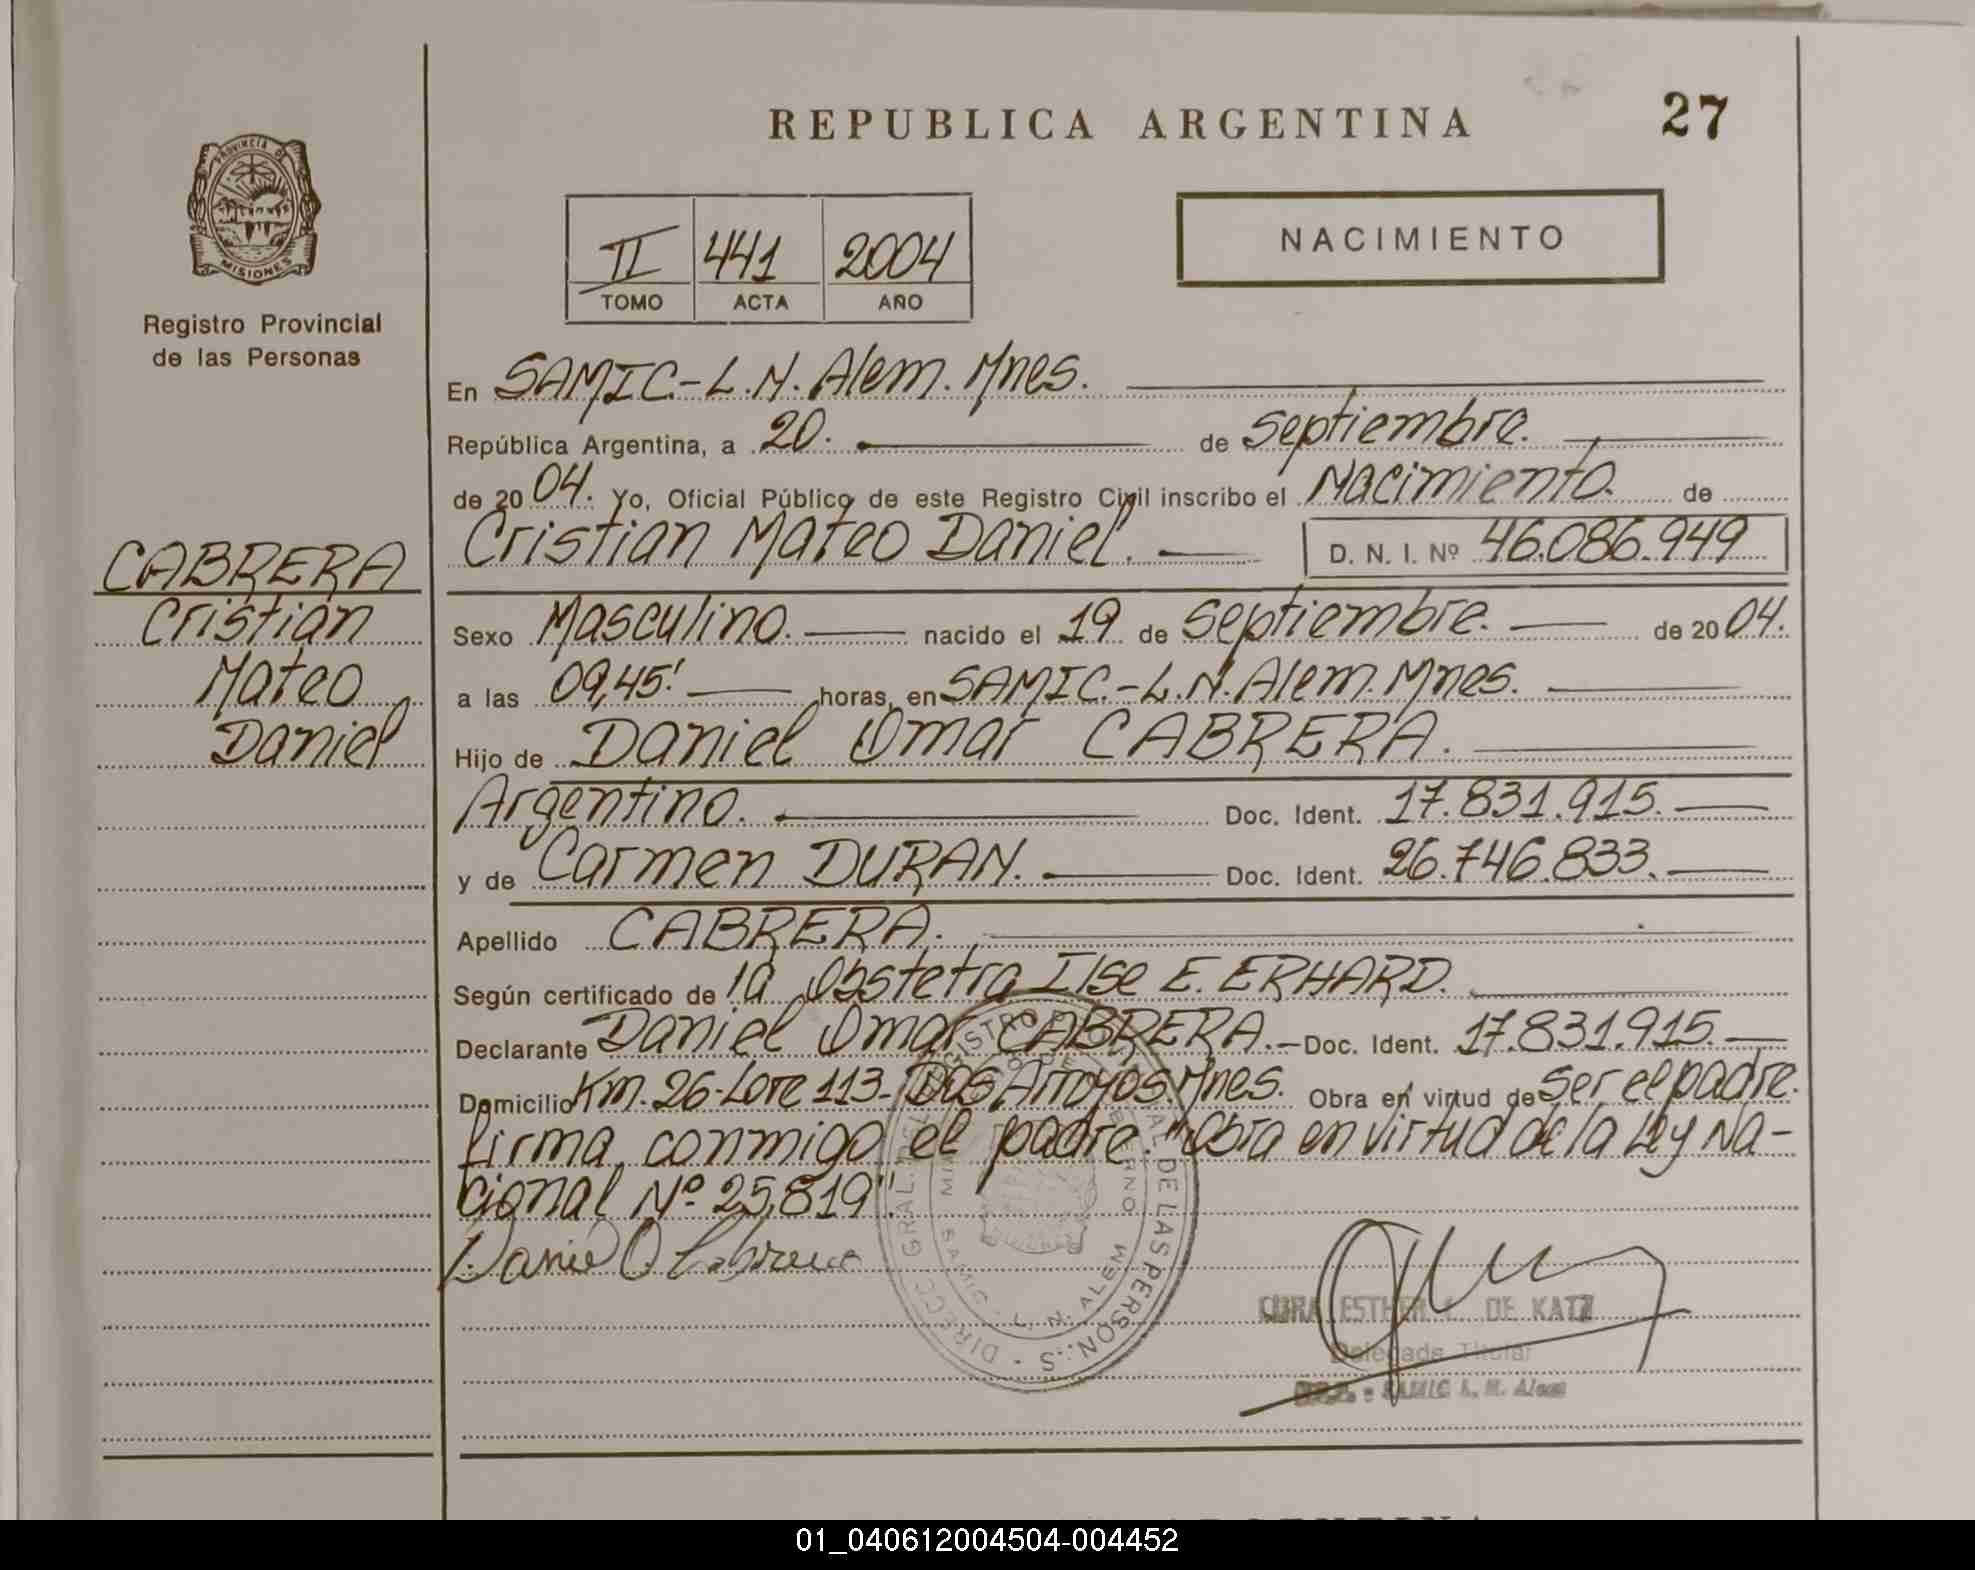 REPUBLICA ARGENTINA
27
PROVINCIA DE
MISIONES
Registro Provincial
de las Personas
II 441 2004
TOMO ACTA AÑO
NACIMIENTO
En SAMIC.-L.N. Alem. Mnes.
República Argentina, a 20. de septiembre.
de 2004. Yo, Oficial Público de este Registro Civil inscribo el Nacimiento. de
Cristian Mateo Daniel. D. N. I. Nº 46.086.949
CABRERA
Cristian
Mateo
Daniel
Sexo Masculino. nacido el 19 de septiembre. de 2004.
a las 09,45' horas, en SAMIC.-L.N. Alem. Mnes.
Hijo de Daniel Omar CABRERA.
Argentino. Doc. Ident. 17.831.915.
y de Carmen DURAN. Doc. Ident. 26.746.833.
Apellido CABRERA.
Según certificado de la Obstetra Ilse E. ERHARD.
Declarante Daniel Omar CABRERA.- Doc. Ident. 17.831.915.
Domicilio Km. 26-Lote 113- Dos Arroyos. Mnes. Obra en virtud de ser el padre.
firma conmigo el padre. "Obra en virtud de la Ley Na-
cional Nº 25.819".
Daniel O. Cabrera
ESTHER DE KATZ
Delegada Titular
SAMIC L. N. Alem
SAMIC - L. N. ALEM
DE LAS PERSONAS
01_040612004504-004452